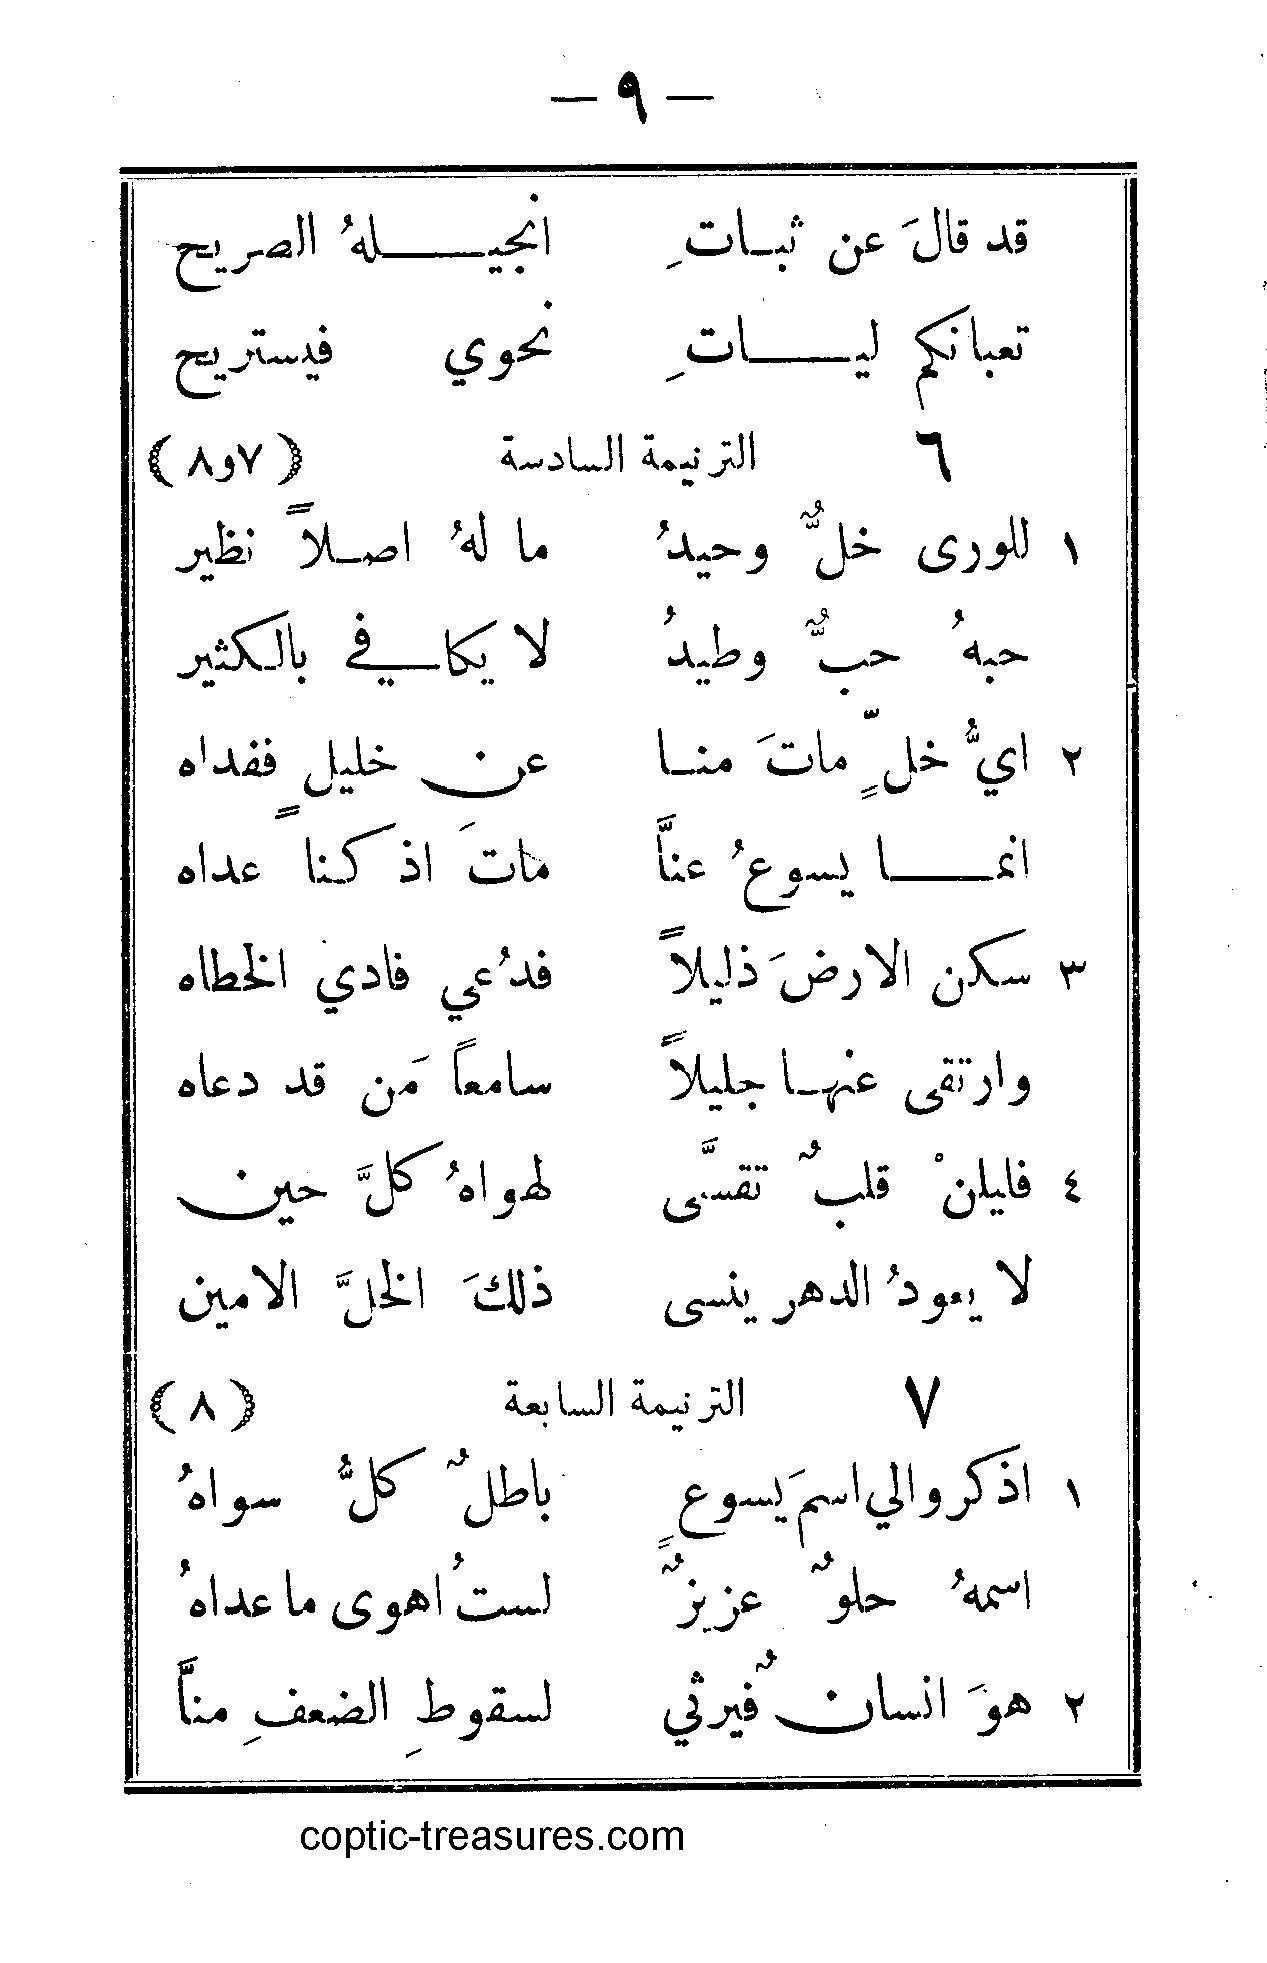 — ٩ —
قد قالَ عن ثبـاتِ انجيـــلهُ الصريح
تعبانكم ليـــاتِ نحوي فيستريح
٦ الترنيمة السادسة (٧و٨)
١ للورى خلٌّ وحيدُ ما لهُ اصـلاً نظير
حبهُ حبٌّ وطيدُ لا يكافي بالكثير
٢ ايُّ خلٍّ ماتَ منـا عن خليلٍ ففداه
انمـــا يسوعُ عنَّا ماتَ اذ كنا عداه
٣ سكن الارضَ ذليلاً فدُعي فادي الخطاه
وارتقى عنهـا جليلاً سامعاً مَن قد دعاه
٤ فليلنْ قلبٌ تقسَّى لهواهُ كلَّ حين
لا يعودُ الدهر ينسى ذلكَ الخلَّ الامين
٧ الترنيمة السابعة (٨)
١ اذكروا لي اسمَ يسوعٍ باطلٌ كلُّ سواهُ
اسمهُ حلوٌ عزيزٌ لستُ اهوى ما عداهُ
٢ هوَ انسانٌ فيرثي لسقوطِ الضعفِ منَّا
coptic-treasures.com